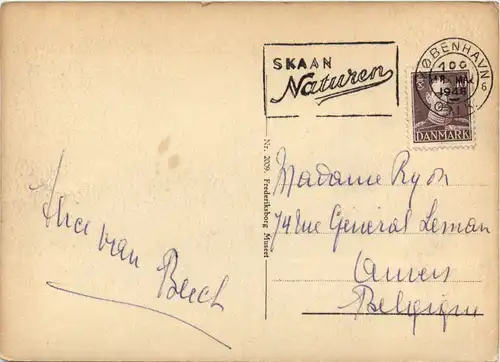 SKAAN
Naturen
KØBENHAVN
6
1946
OMC.
DANMARK
Nr. 2009. Frederiksborg Museet
Madame Ryon
74 Rue General Leman
Anvers
Belgique
van
Beuch